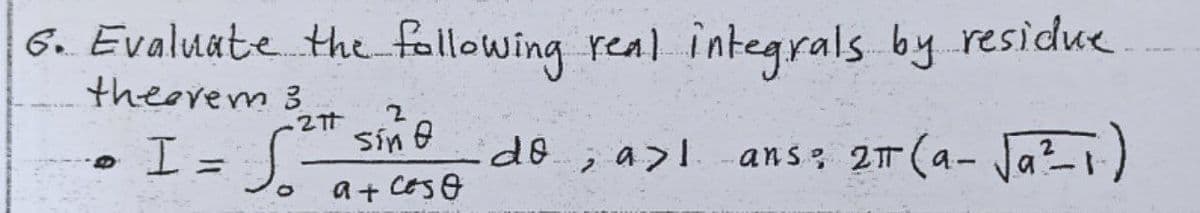 6. Evaluate the following real integrals by residue
theorem 3
• I = ∫₀^2π sin²θ / (a + cosθ) dθ , a>1 ans: 2π (a - √(a²-1))